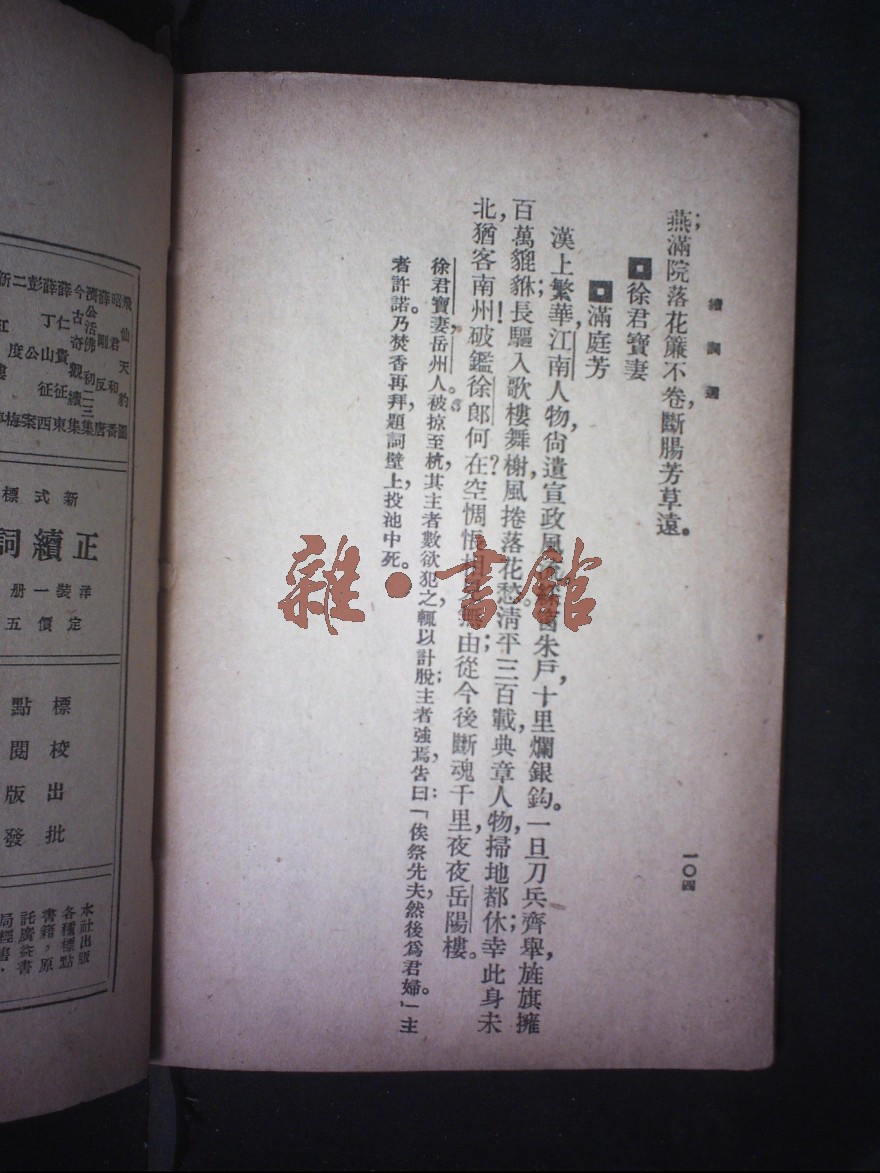 續詞選
燕滿院落花簾不卷，斷腸芳草遠。
徐君寶妻
滿庭芳
漢上繁華，江南人物，尙遺宣政風朱戶，十里爛銀鈎。一旦刀兵齊舉，旌旗擁
百萬貔貅；長驅入歌樓舞榭，風捲落花愁。淸平三百載，典章人物，掃地都休；幸此身未
北，猶客南州！破鑑徐郞何在？空惆悵由；從今後斷魂千里，夜夜岳陽樓。
徐君寶妻，岳州人。被掠至杭，其主者數欲犯之，輒以計脫；主者強焉，吿曰：「俟祭先夫，然後爲君婦。」主
者許諾。乃焚香再拜，題詞壁上，投池中死。
一〇四
飛仙天豹圖
昭君和番
薛剛反唐
濟公活佛初二三集
今古奇觀續集
薛仁貴征東
薛丁山征西
彭公案
二度梅
新式標
正續詞
洋裝一册
定價五
標點
校閱
出版
批發
本社出版
各種標點
書籍，原
託廣益書
局經售．
雜·書館